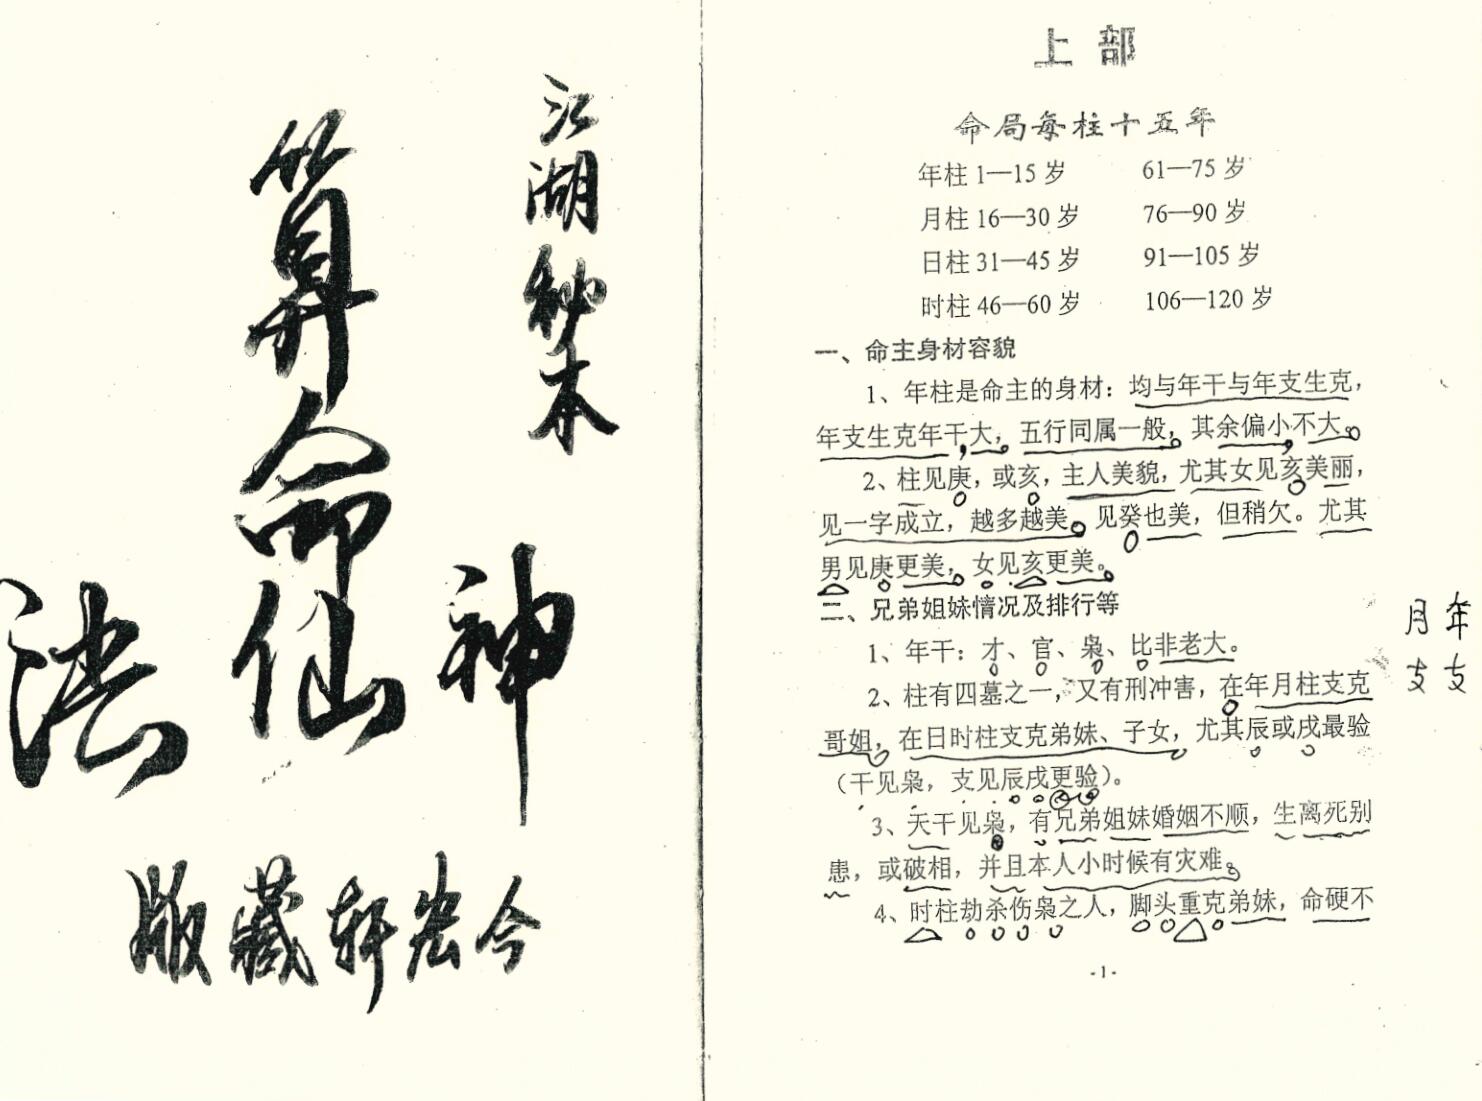 江湖秘本
算命
神仙法
今 轩藏版
上部
命局每柱十五年
年柱 1—15 岁 61—75 岁
月柱 16—30 岁 76—90 岁
日柱 31—45 岁 91—105 岁
时柱 46—60 岁 106—120 岁
一、命主身材容貌
1、年柱是命主的身材：均与年干与年支生克，
年支生克年干大，五行同属一般，其余偏小不大。
2、柱见庚，或亥，主人美貌，尤其女见亥美丽，
见一字成立，越多越美。见癸也美，但稍欠。尤其
男见庚更美，女见亥更美。
二、兄弟姐妹情况及排行等
1、年干：才、官、枭、比非老大。
2、柱有四墓之一，又有刑冲害，在年月柱支克
哥姐，在日时柱支克弟妹、子女，尤其辰或戌最验
（干见枭，支见辰戌更验）。
3、天干见枭，有兄弟姐妹婚姻不顺，生离死别
患，或破相，并且本人小时候有灾难。
4、时柱劫杀伤枭之人，脚头重克弟妹，命硬不
-1-
年支
月支